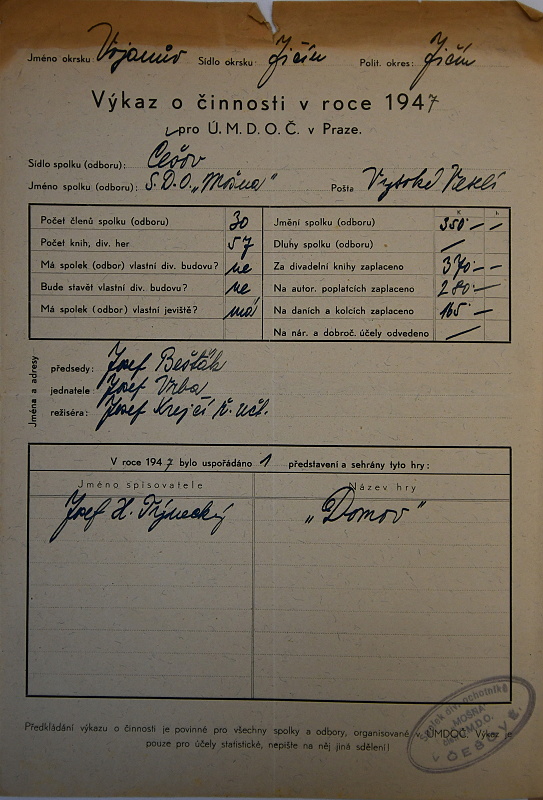 Jméno okrsku: Vojanův Sídlo okrsku: Jičín Polit. okres: Jičín
Výkaz o činnosti v roce 1947
pro Ú. M. D. O. Č. v Praze.
Sídlo spolku (odboru): Češov
Jméno spolku (odboru): S.D.O. „Mošna" Pošta Vysoké Veselí
K h
Počet členů spolku (odboru) 30 Jmění spolku (odboru) 350 — —
Počet knih, div. her 57 Dluhy spolku (odboru) —
Má spolek (odbor) vlastní div. budovu? ne Za divadelní knihy zaplaceno 370 — —
Bude stavět vlastní div. budovu? ne Na autor. poplatcích zaplaceno 280 —
Má spolek (odbor) vlastní jeviště? má Na daních a kolcích zaplaceno 165 —
Na nár. a dobroč. účely odvedeno —
Jména a adresy
předsedy: Josef Bešťák
jednatele: Josef Vrba
režiséra: Josef Krejčí ř. uč.
V roce 1947 bylo uspořádáno 1 představení a sehrány tyto hry:
Jméno spisovatele Název hry
Josef H. Týnecký „Domov"
Spolek div. ochotníků
MOŠNA
Ú.M.D.O.
v ČEŠOVĚ.
Předkládání výkazu o činnosti je povinné pro všechny spolky a odbory, organisované v ÚMDOČ. Výkaz je
pouze pro účely statistické, nepište na něj jiná sdělení!